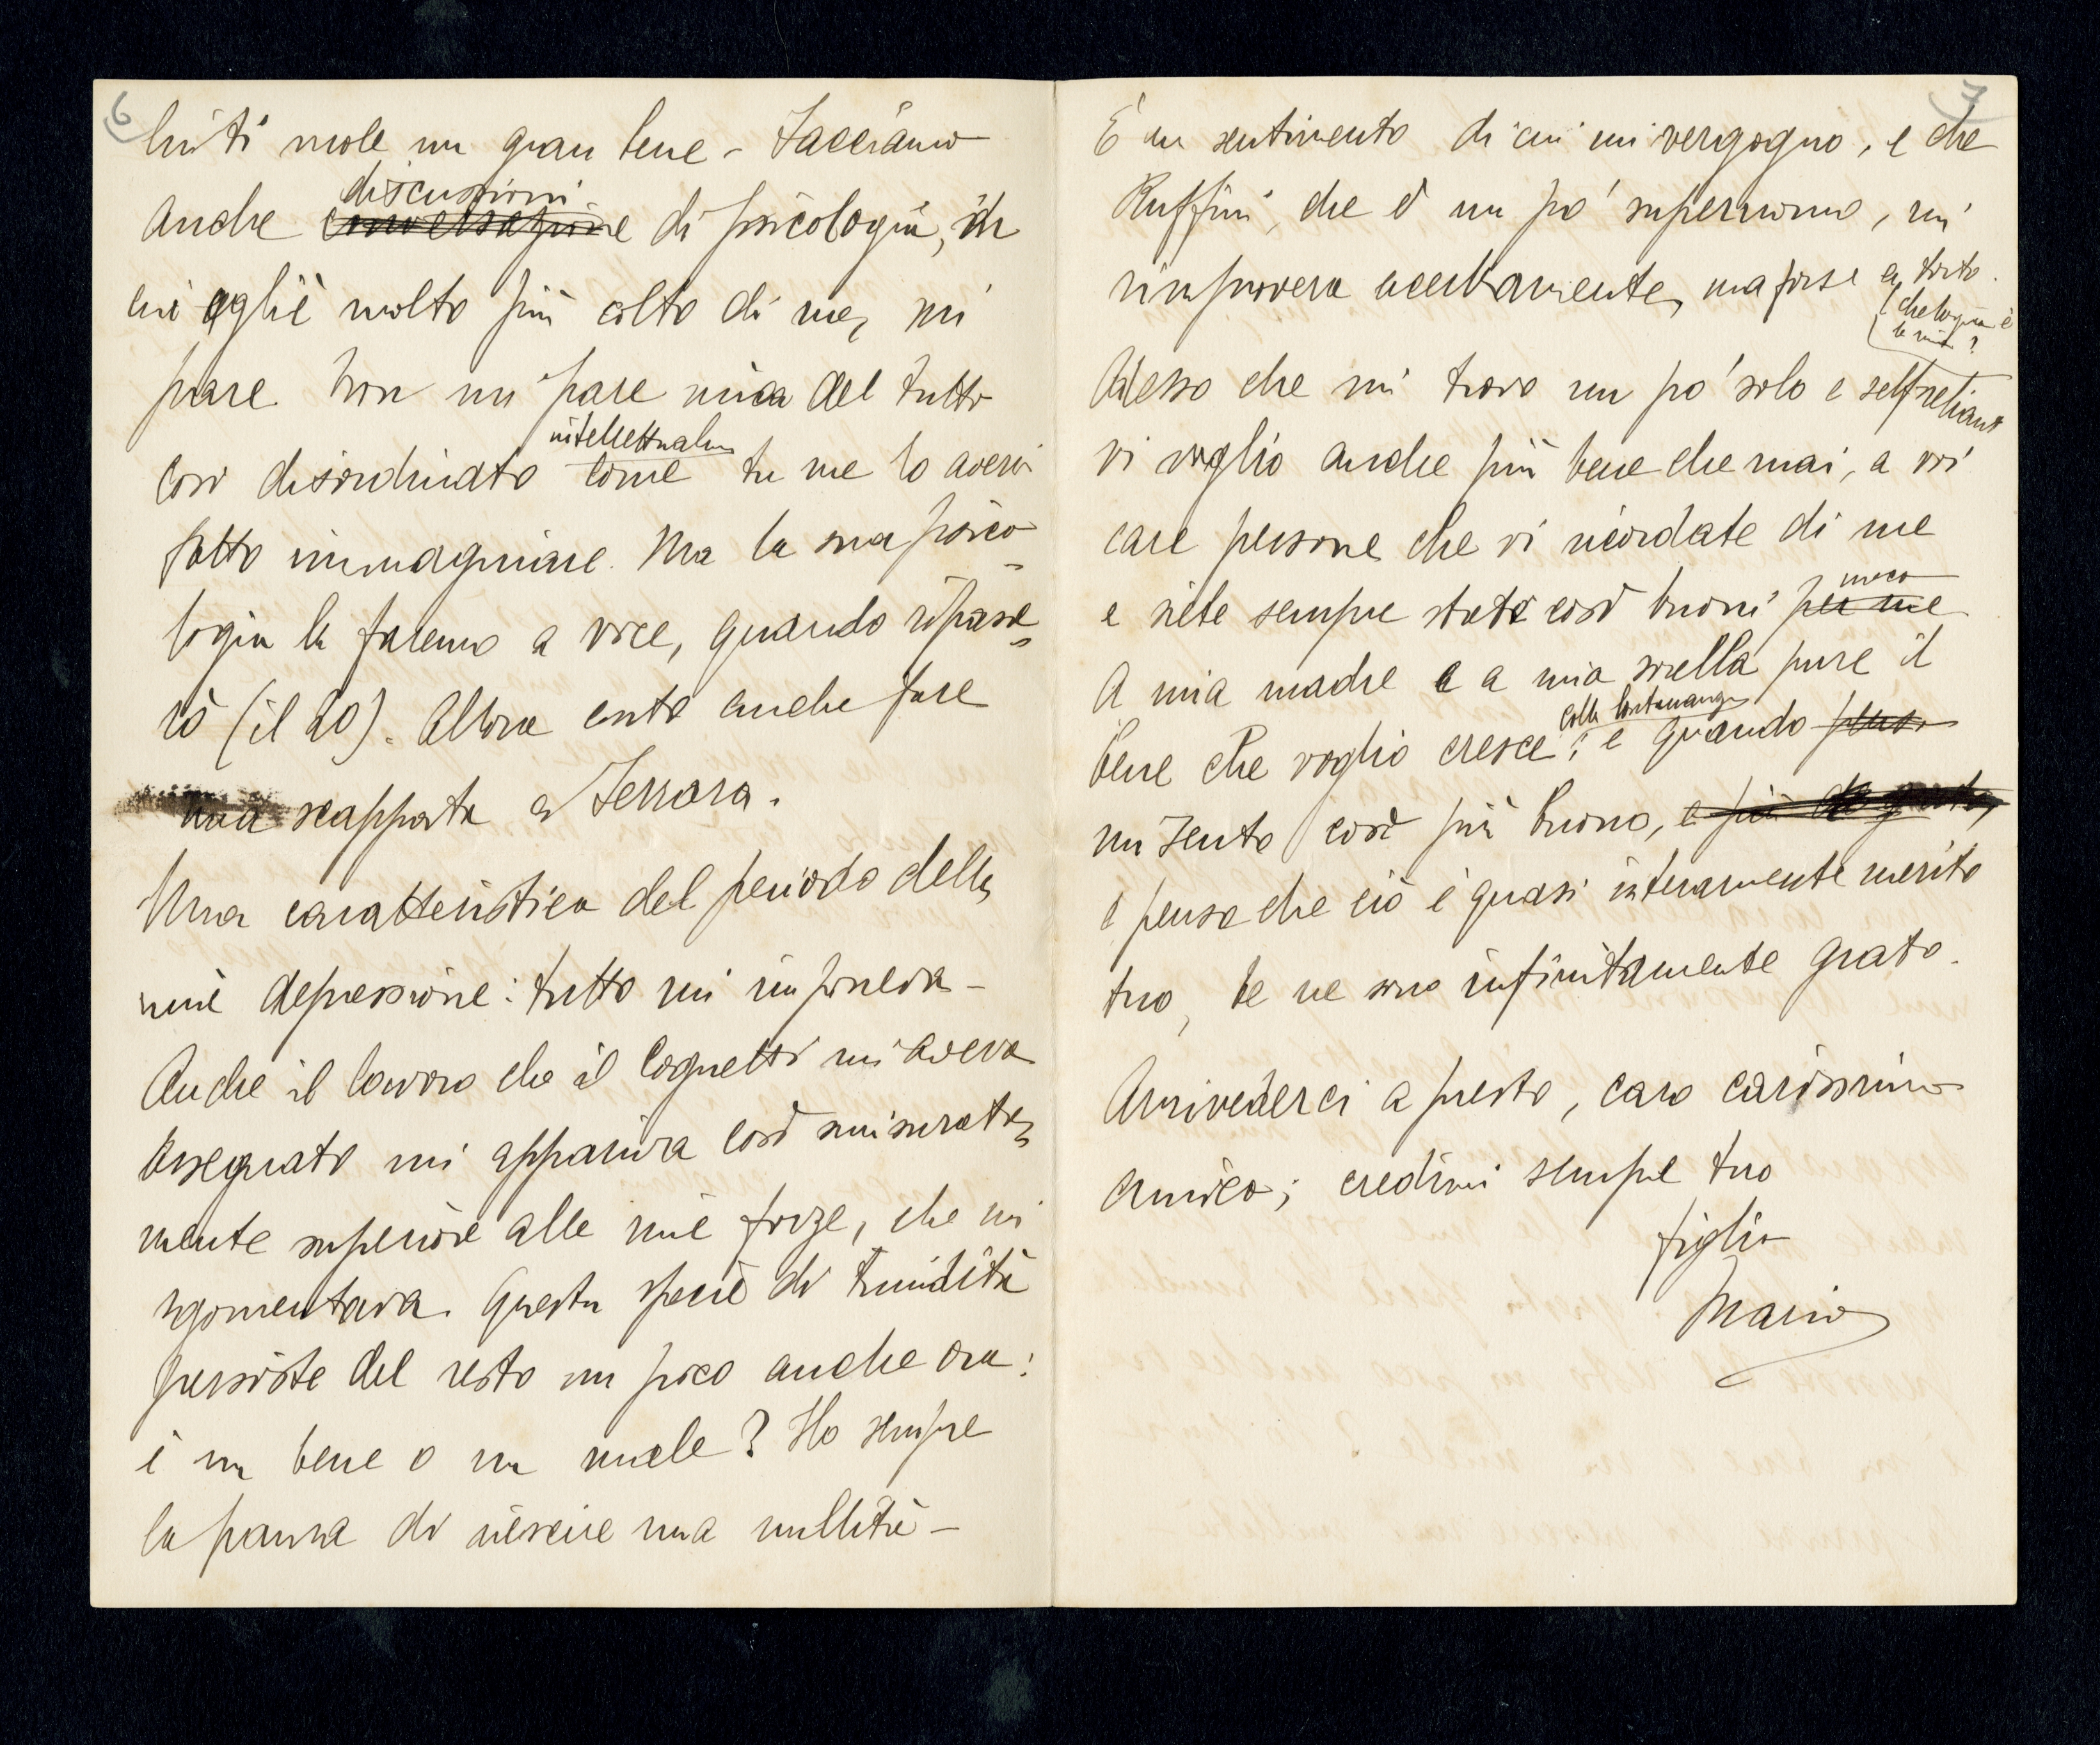 6
lui ti vuole un gran bene – Facciamo
discussioni
anche conversazione di psicologia, in
cui egli è molto più colto di me, mi
pare. Non mi pare mica del tutto
intellettualm
così disordinato come tu me lo avevi
fatto immaginare. Ma la sua psico=
logia la faremo a voce, quando ripasse=
rò (il 20). Allora conto anche fare
una scappata a Ferrara.
Una caratteristica del periodo della
mia depressione: tutto mi impauriva –
Anche il lavoro che il Cognetti mi aveva
assegnato mi appariva così smisurata=
mente superiore alle mie forze, che mi
sgomentava. Questa specie di timidità
persiste del resto un poco anche ora:
è un bene o un male? Ho sempre
la paura di riescire una nullità –
7
È un sentimento di cui mi vergogno, e che
Ruffini, che è un po' superuomo, mi
rimprovera acerbamente, ma forse a torto.
(che logica è
la mia?
Adesso che mi trovo un po' solo e self reliant
vi voglio anche più bene che mai, a voi
care persone che vi ricordate di me
meco
e siete sempre state così buoni per me
A mia madre e a mia sorella pure il
colla lontananza
bene che voglio cresce; e quando penso
mi sento così più buono, e più
e penso che ciò è quasi interamente merito
tuo, te ne sono infinitamente grato.
Arrivederci a presto, caro carissimo
amico; credimi sempre tuo
figlio
Mario